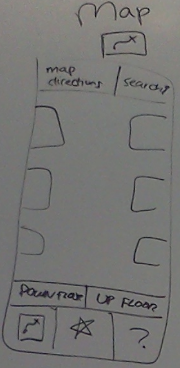 Map
map
directions
search
DOWN FLOOR
UP FLOOR
?